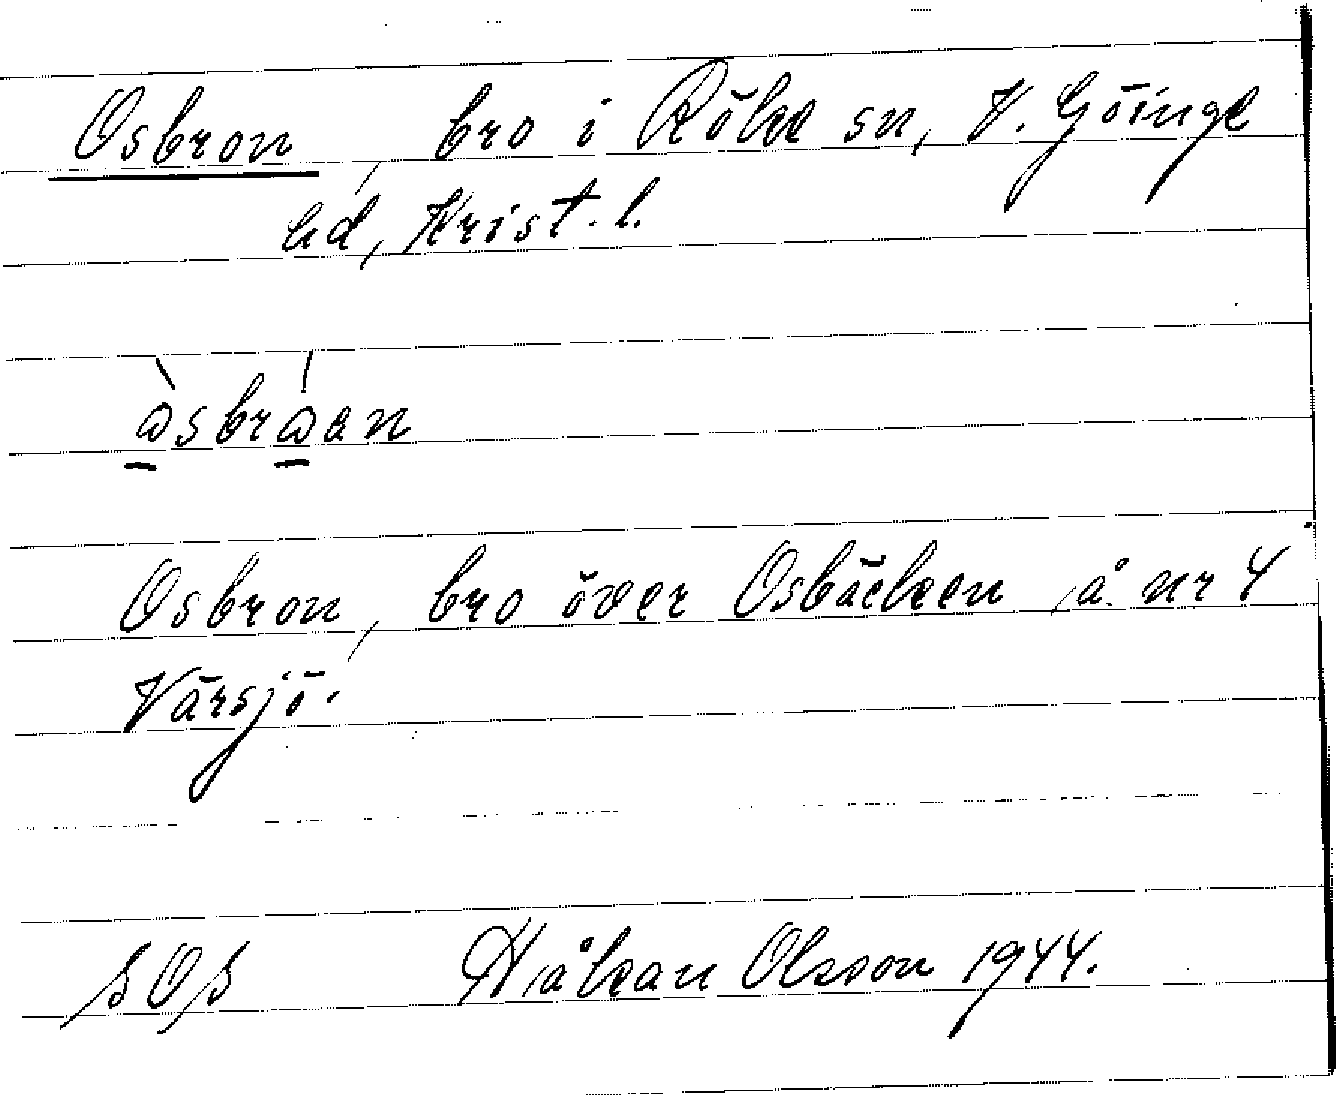 Osbron, bro i Röke sn, V. Göinge
hd, Krist. l.
Osbron, bro över Osbäcken, å nr 4
Värsjö.
SOS Håkan Olsson 1944.